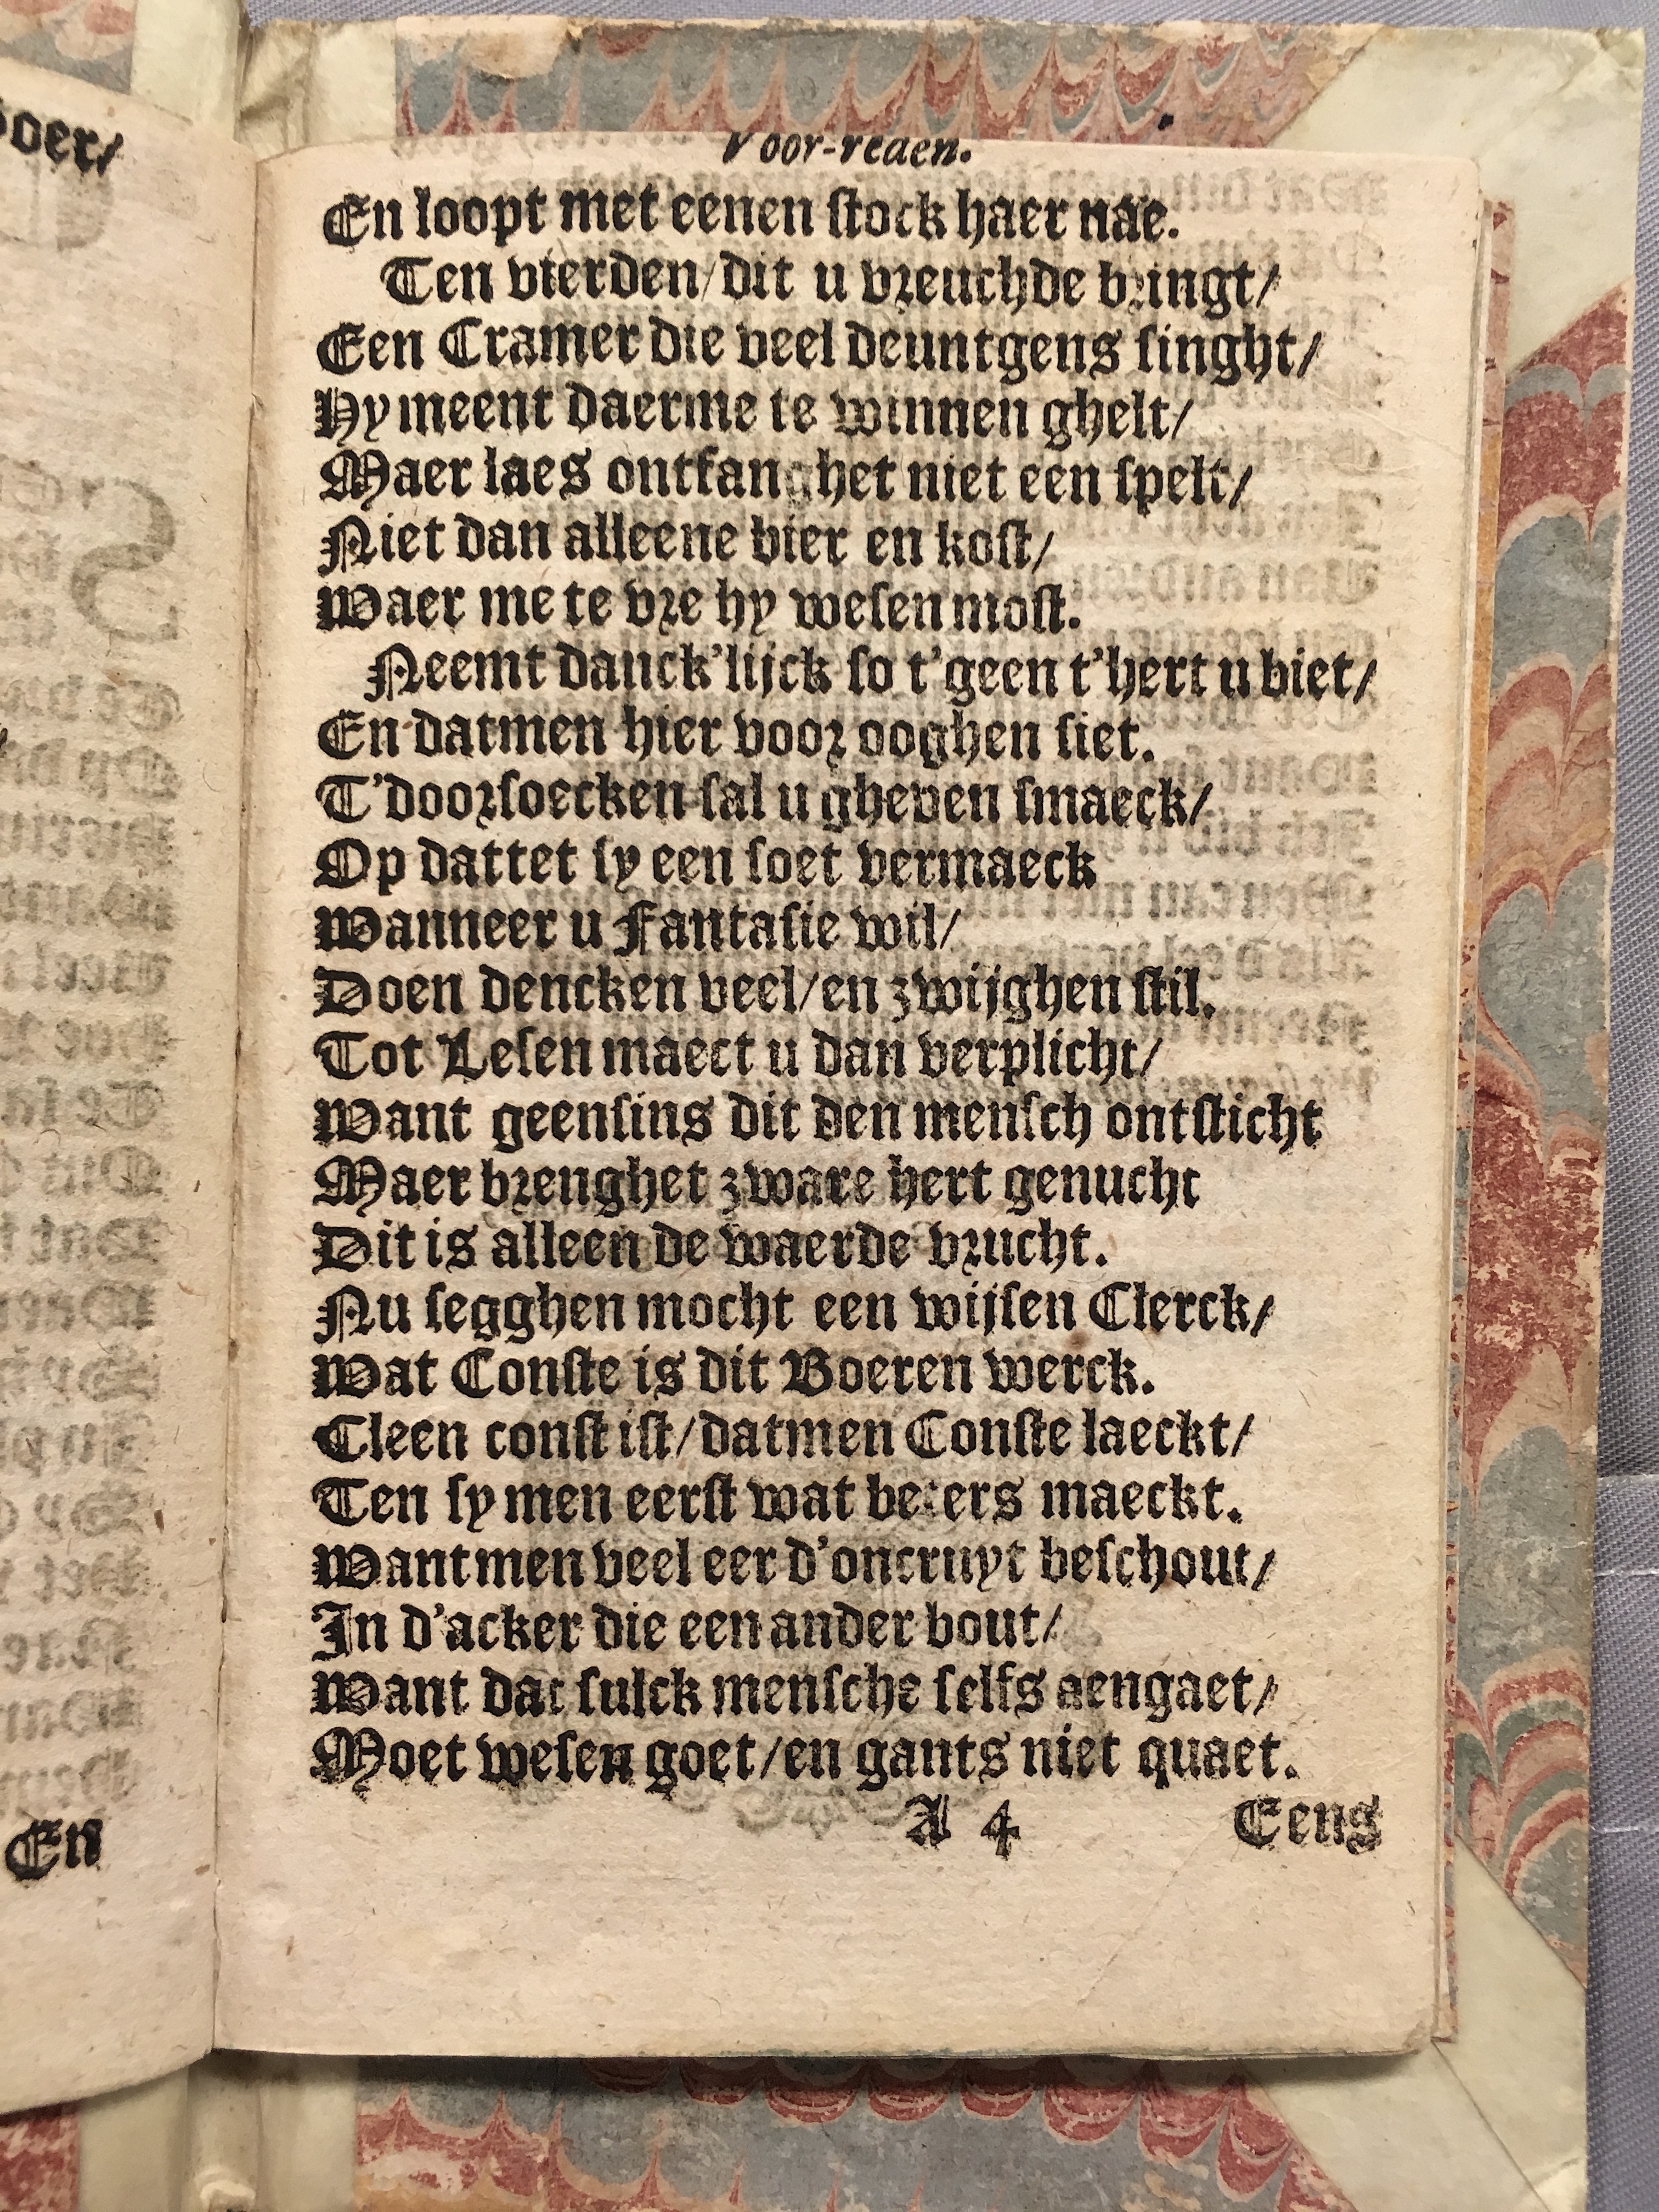 oer/
En
Voor-reden.
En loopt met eenen stock haer nae.
Ten vierden/dit u vreuchde bringt/
Een Cramer die veel deuntgens singht/
Hy meent daerme te winnen ghelt/
Maer laes ontfanghet niet een spelt/
Niet dan alleene bier en kost/
Waer me te vre hy wesen most.
Neemt danck'lijck so t'geen t'hert u biet/
En datmen hier voor ooghen siet.
T'doorsoecken sal u gheven smaeck/
Op dattet sy een soet vermaeck
Wanneer u Fantasie wil/
Doen dencken veel/en zwijghen stil.
Tot Lesen maect u dan verplicht/
Want geensins dit den mensch ontsticht
Maer brenghet zware hert genucht
Dit is alleen de waerde vrucht.
Nu segghen mocht een wijsen Clerck/
Wat Conste is dit Boeren werck.
Cleen const ist/datmen Conste laeckt/
Ten sy men eerst wat beters maeckt.
Want men veel eer d'oncruyt beschout/
In d'acker die een ander bout/
Want dat sulck mensche selfs aengaet/
Moet wesen goet/en gants niet quaet.
A 4 Eens